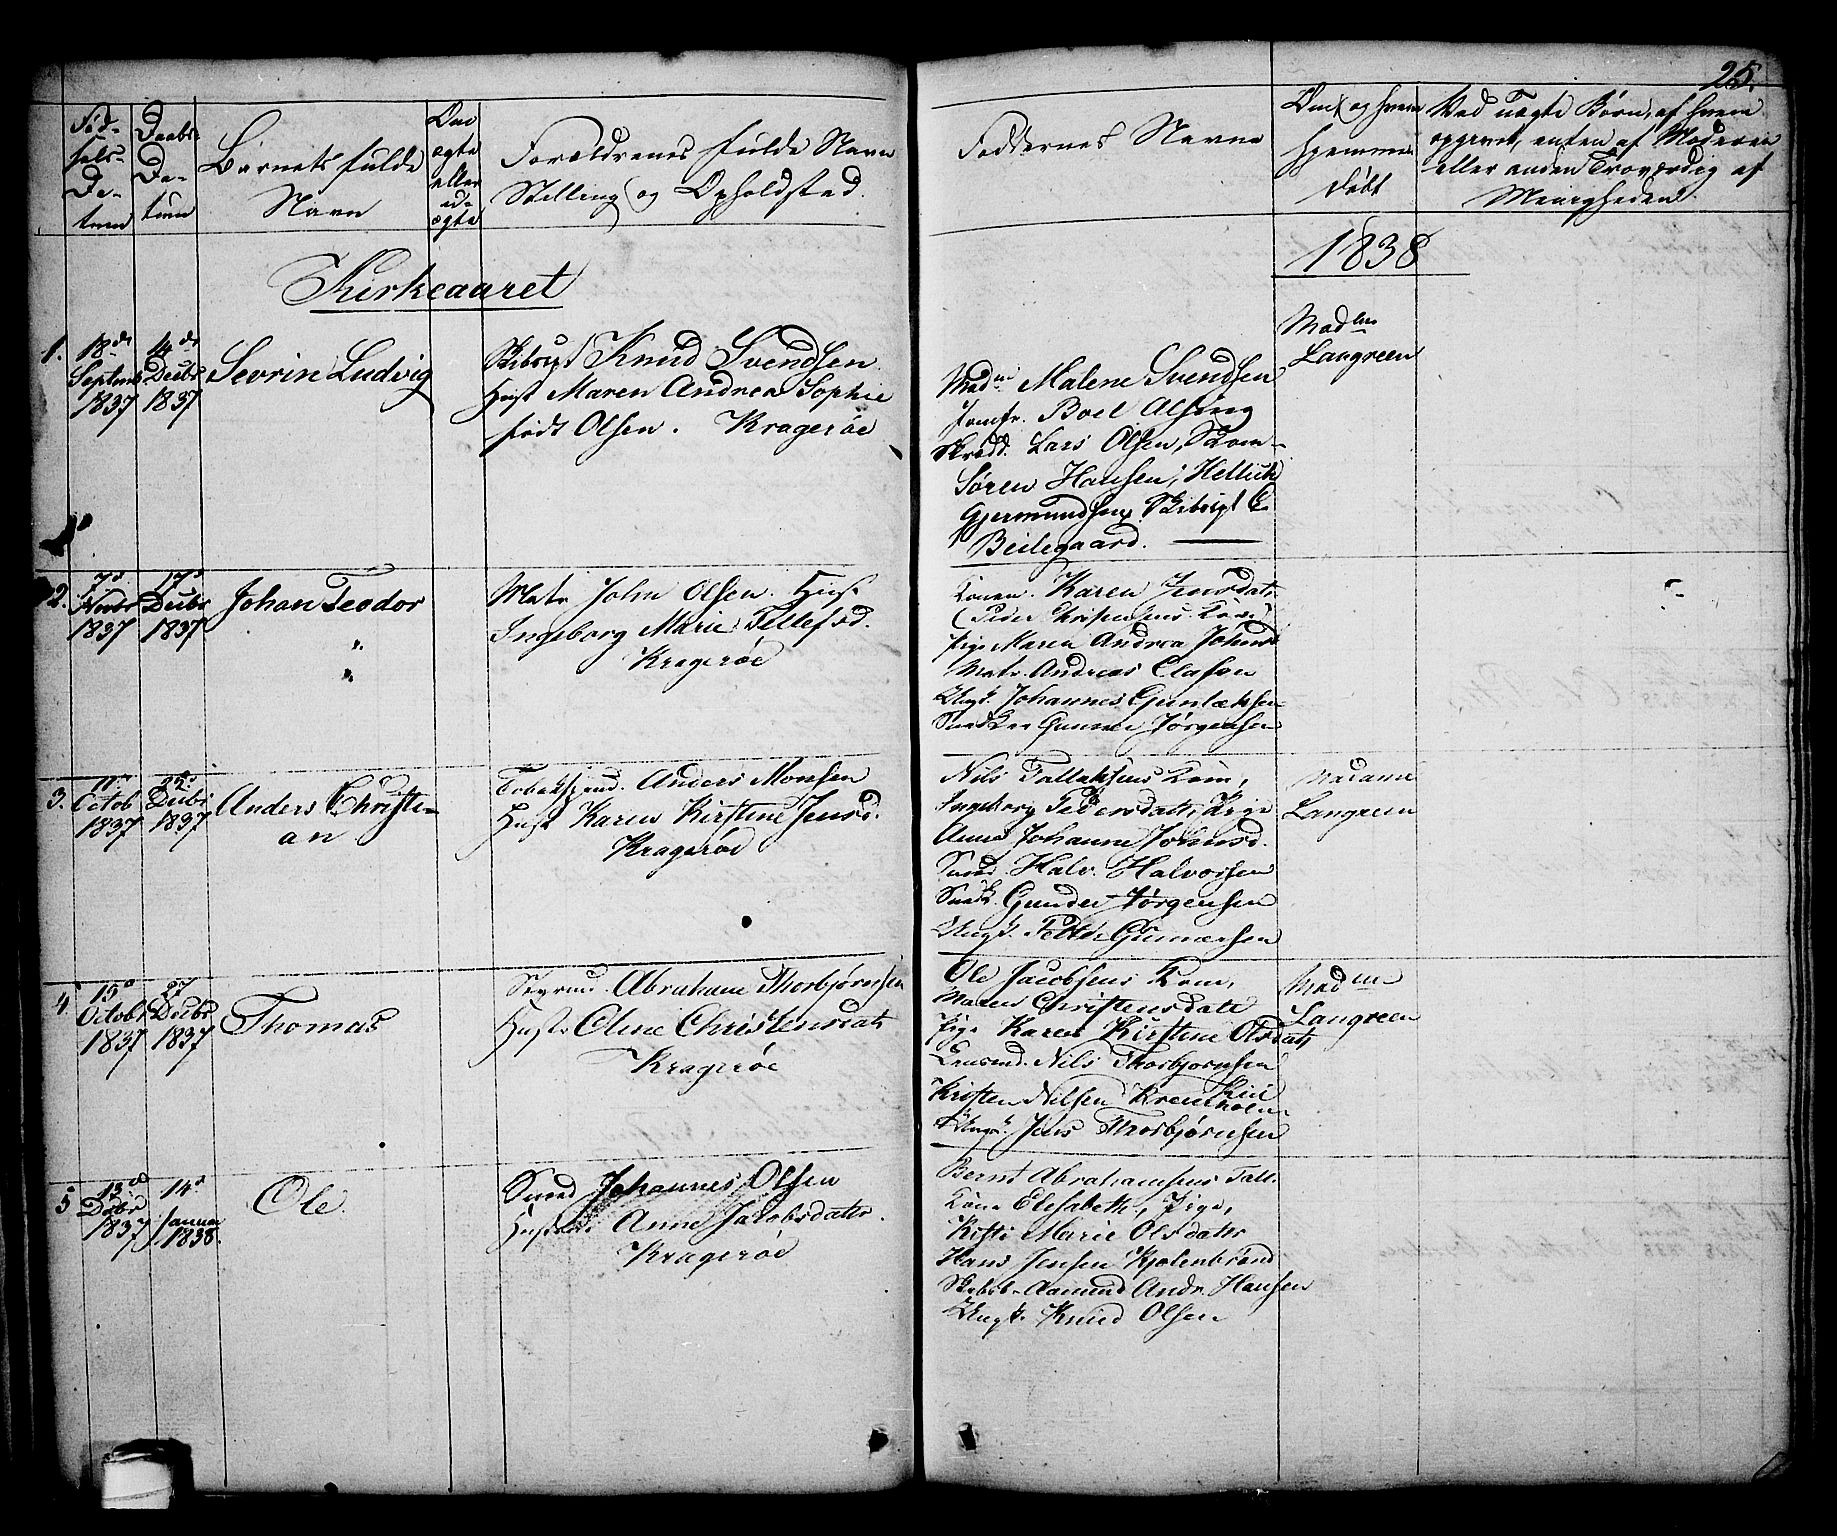 25.
Fød-
sels-
Da-
tum
Daabs-
Da-
tum
Barnets fulde
Navn
Om
ægte
eller
u-
ægte
Forældrenes fulde Navn
Stilling og Opholdsted.
Faddernes Navne
Om og hvem
hjemme
døbt
Ved uægte Børn, af hvem
opgivet, enten af Moderen
eller anden Troværdig af
Menigheden.
Kirkeaaret
1838
1.
18de
Septmb
1837
14de
Decbr
1837
Sevrin Ludvig
Knud Svendsen
Hust Maren Andrea Sophie
født Olsen. Kragerøe
Madm Malene Svendsen
Jomfr. Boel Alsing
Skrædd. Lars Olsen,
Søren Hansen, Hellick
Gjermundsen,
Beilegaard.
Langreen
2.
7d
Novbr
1837
17d
Decbr
1837
Johan Teodor
Matr John Olsen. Hust
Ingeborg Marie Tellefsd.
Kragerøe
Konen Karen Jensdatr
(Peder Christensens Kone)
Pige Maren Andrea Johns
Matr. Andreas Olafsen
Ungk. Johannes Gunlaksen
Gunne Jørgensen
3.
11d
Octob
1837
25d
Decbr
1837
Anders Christi-
an
Anders Monsen
Hust Karen Kirstine Jensd.
Kragerøe
Nils Tallaksens Kone,
Ingeborg Pedersdatr, Pige
Anne Johanne Johnsd.
Smed. Halv. Halvorsen
Snedk. Gunder Jørgensen
Ungk. Gunnersen
Madame
Langreen
4.
15d
Octobr
1837
27
Decbr
1837
Thomas
Abraham Thorbjørnsen
Hust. Oline Christensdatr
Kragerøe
Ole Jacobsens Kone,
Maren Christensdatr
Pige Karen Kirstine Olsdatr
Nils Thorbjørnsen
Kristen Nilsen
Ungk. Jens Thorbjørnsen
Langreen
5
13d
Decbr
1837
14d
Januar
1838.
Ole
Smed Johannes Olsen
Hustrue Anne Jacobsdatr.
Kragerøe
Bernt Abrahamsens
Kone Elesabeth, Pige,
Kisti Marie Olsdatr
Hans Jensen Kjølenbrønd
Aamund Andr. Hansen
Ungk. Knud Olsen